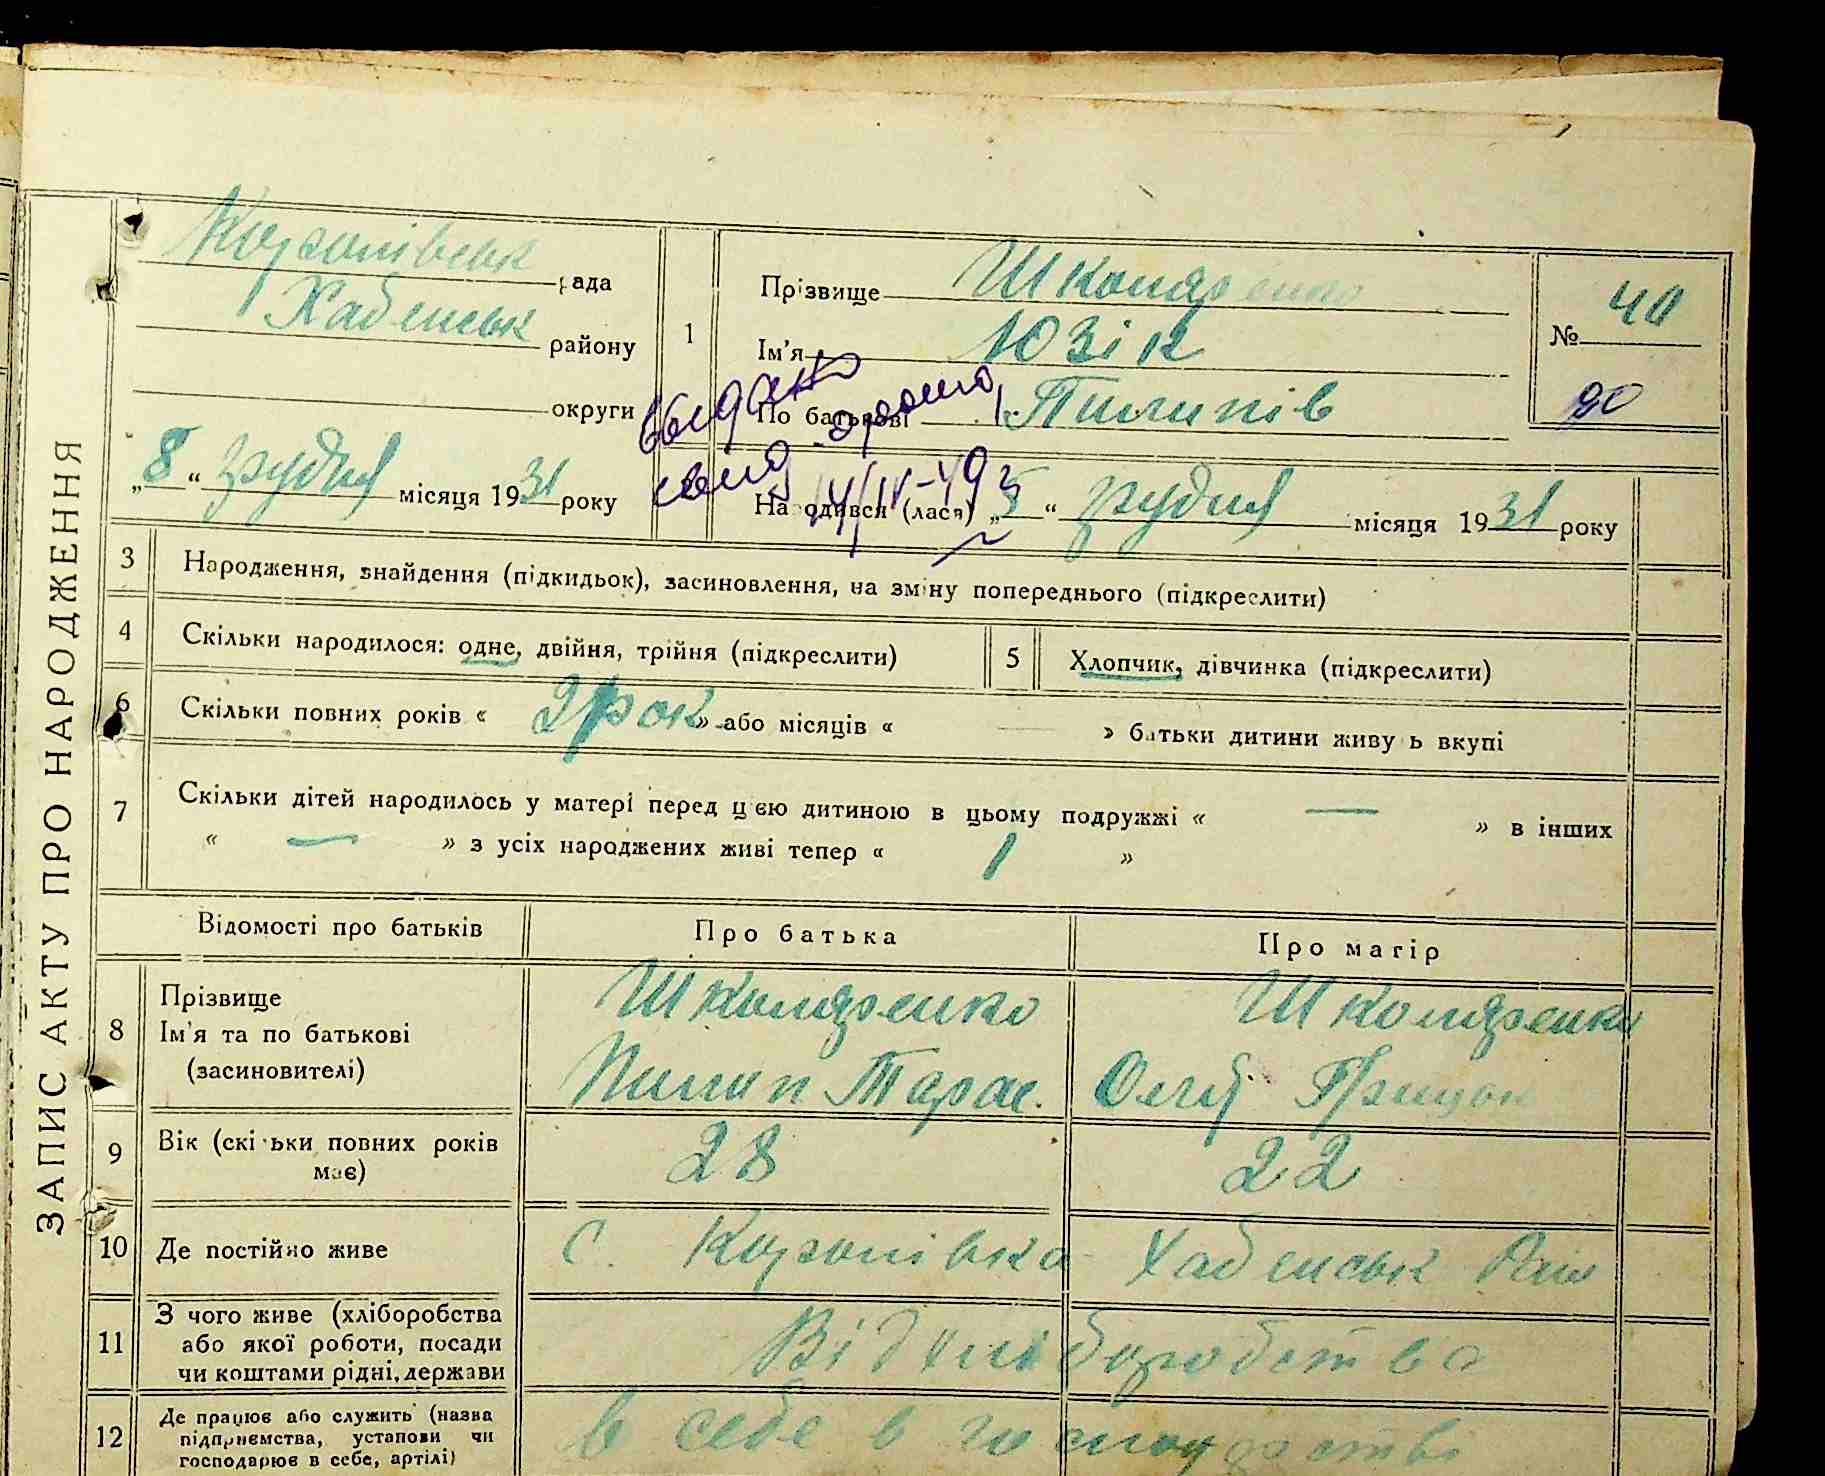 ЗАПИС АКТУ ПРО НАРОДЖЕННЯ
рада
Хабенськ району
округи
„8“ грудня місяця 1931 року
1
Прізвище Школяренко
Ім'я Юзік
По батькові Пилипів
№ 40
90
14/IV-49
Народився (лася) „5“ грудня місяця 1931 року
3 Народження, знайдення (підкидьок), засиновлення, на зміну попереднього (підкреслити)
4 Скільки народилося: одне, двійня, трійня (підкреслити)
5 Хлопчик, дівчинка (підкреслити)
6 Скільки повних років « 2 рок » або місяців « — » батьки дитини живуть вкупі
7 Скільки дітей народилось у матері перед цією дитиною в цьому подружжі « — » в інших
« — » з усіх народжених живі тепер « 1 »
Відомості про батьків
Про батька
Про матір
8 Прізвище
Ім'я та по батькові
(засиновителі)
Школяренко
Пилип Тарас.
Школяренко
9 Вік (скільки повних років
має)
28
22
10 Де постійно живе
с. Хабенськ Рай
11 З чого живе (хліборобства
або якої роботи, посади
чи коштами рідні, держави
Від хліборобства
12 Де працює або служить (назва
підприємства, установи чи
господарює в себе, артілі)
в себе в господарстві